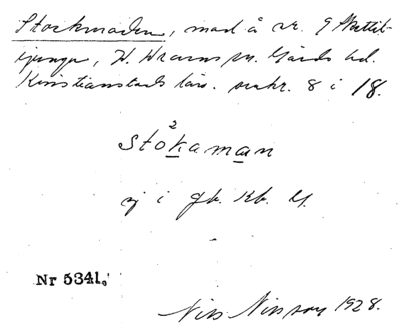 Stockmaden, mad å nr. 9 Skättil-
ljunga, V. Vrams sn. Gärds hd.
Kristianstads län. snkr. 8 i 18.
2
stokaman
ej i jb. Kb. U.
Nr 5341.
Nils Nilsson 1928.